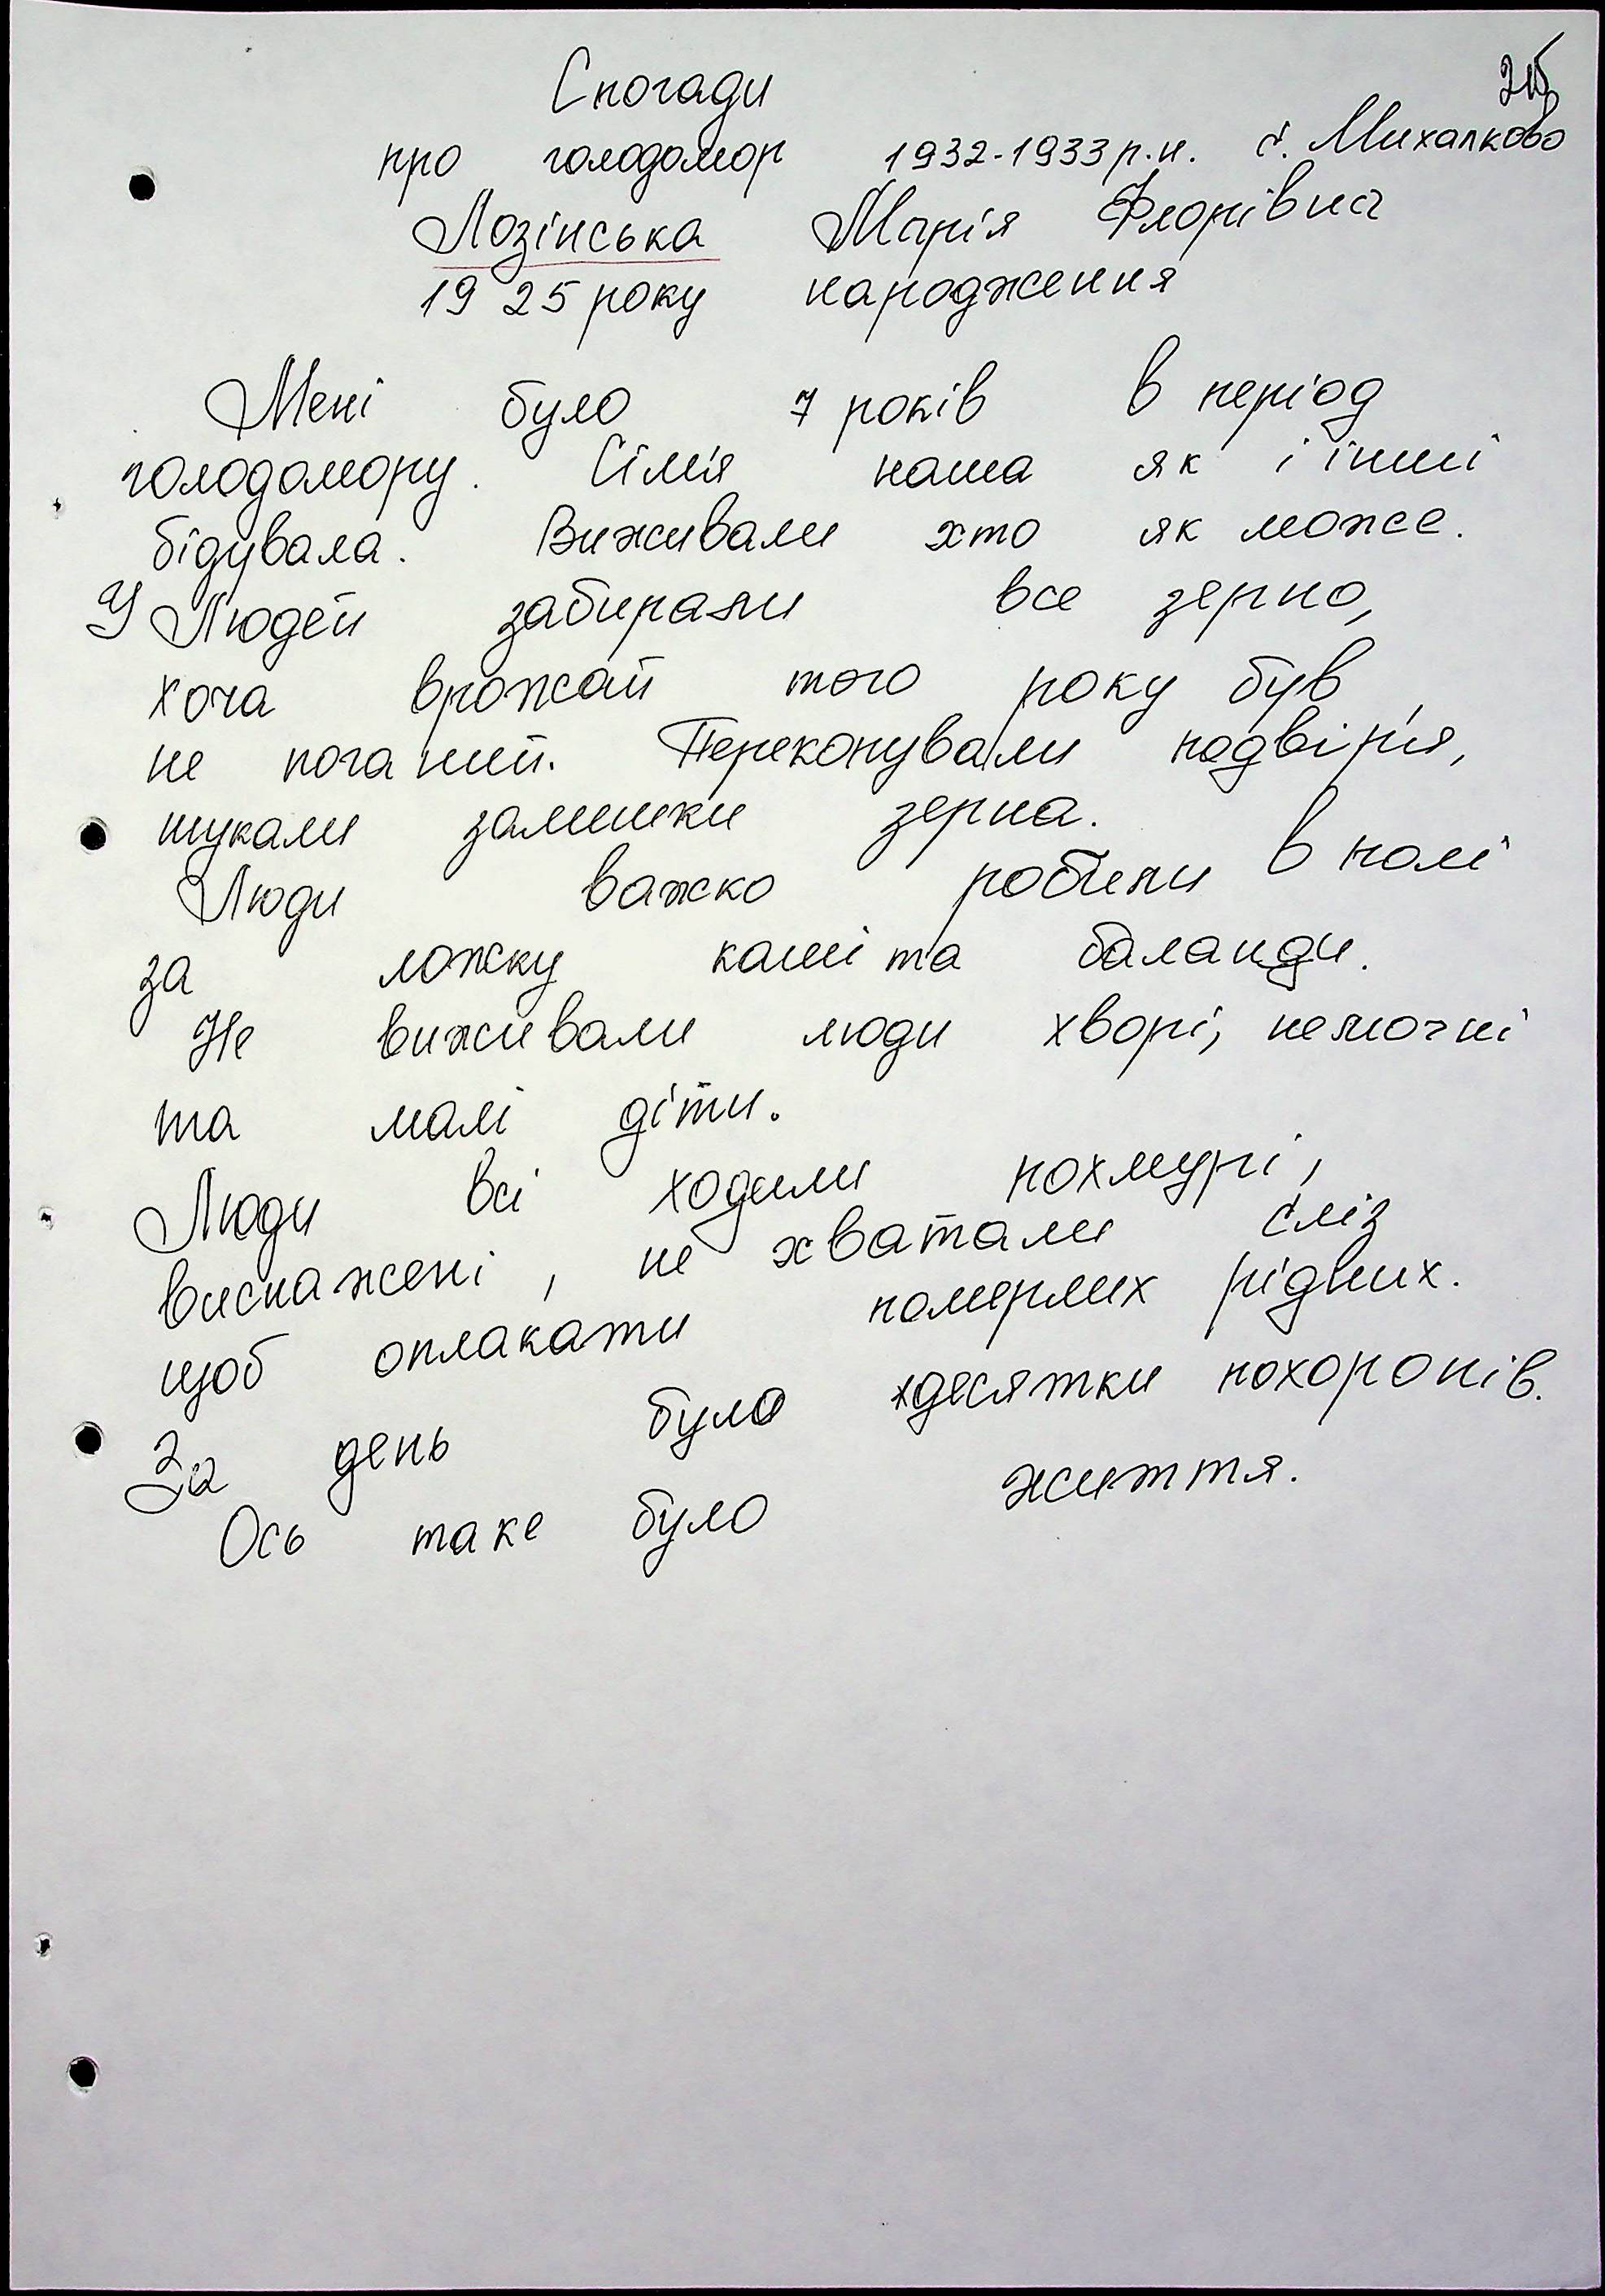 Спогади
про голодомор 1932-1933 р.н. с. Михалково
Лозінська Марія Флорівна
1925 року народження
Мені було 7 років в період
голодомору. Сім'я наша як і інші
бідувала. Виживали хто як може.
У Людей забирали все зерно,
хоча врожай того року був
не поганий. Перекопували подвір'я,
шукали залишки зерна.
Люди важко робили в полі
за ложку каші та баланди.
Не виживали люди хворі, немочні
та малі діти.
Люди всі ходили похмурі,
виснажені, не хватали сліз
щоб оплакати померлих рідних.
За день було десятки похоронів.
Ось таке було життя.